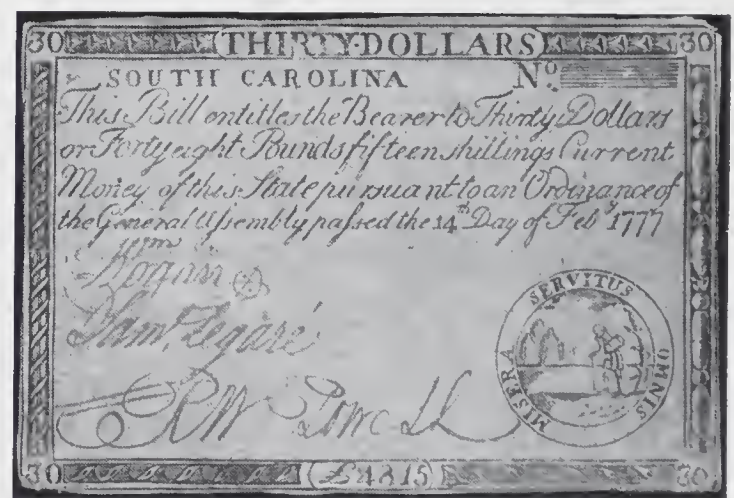 30 THIRTY·DOLLARS 30
SOUTH CAROLINA Nº.
This Bill entitles the Bearer to Thirty Dollars
or Forty eight Pounds fifteen shillings Current
Money of this State pursuant to an Ordinance of
the General Assembly passed the 14th Day of Feby 1777
Wm
Logan
Saml Legaré
R W Powell
MISERA SERVITUS OMNIS
30 £48 15 30